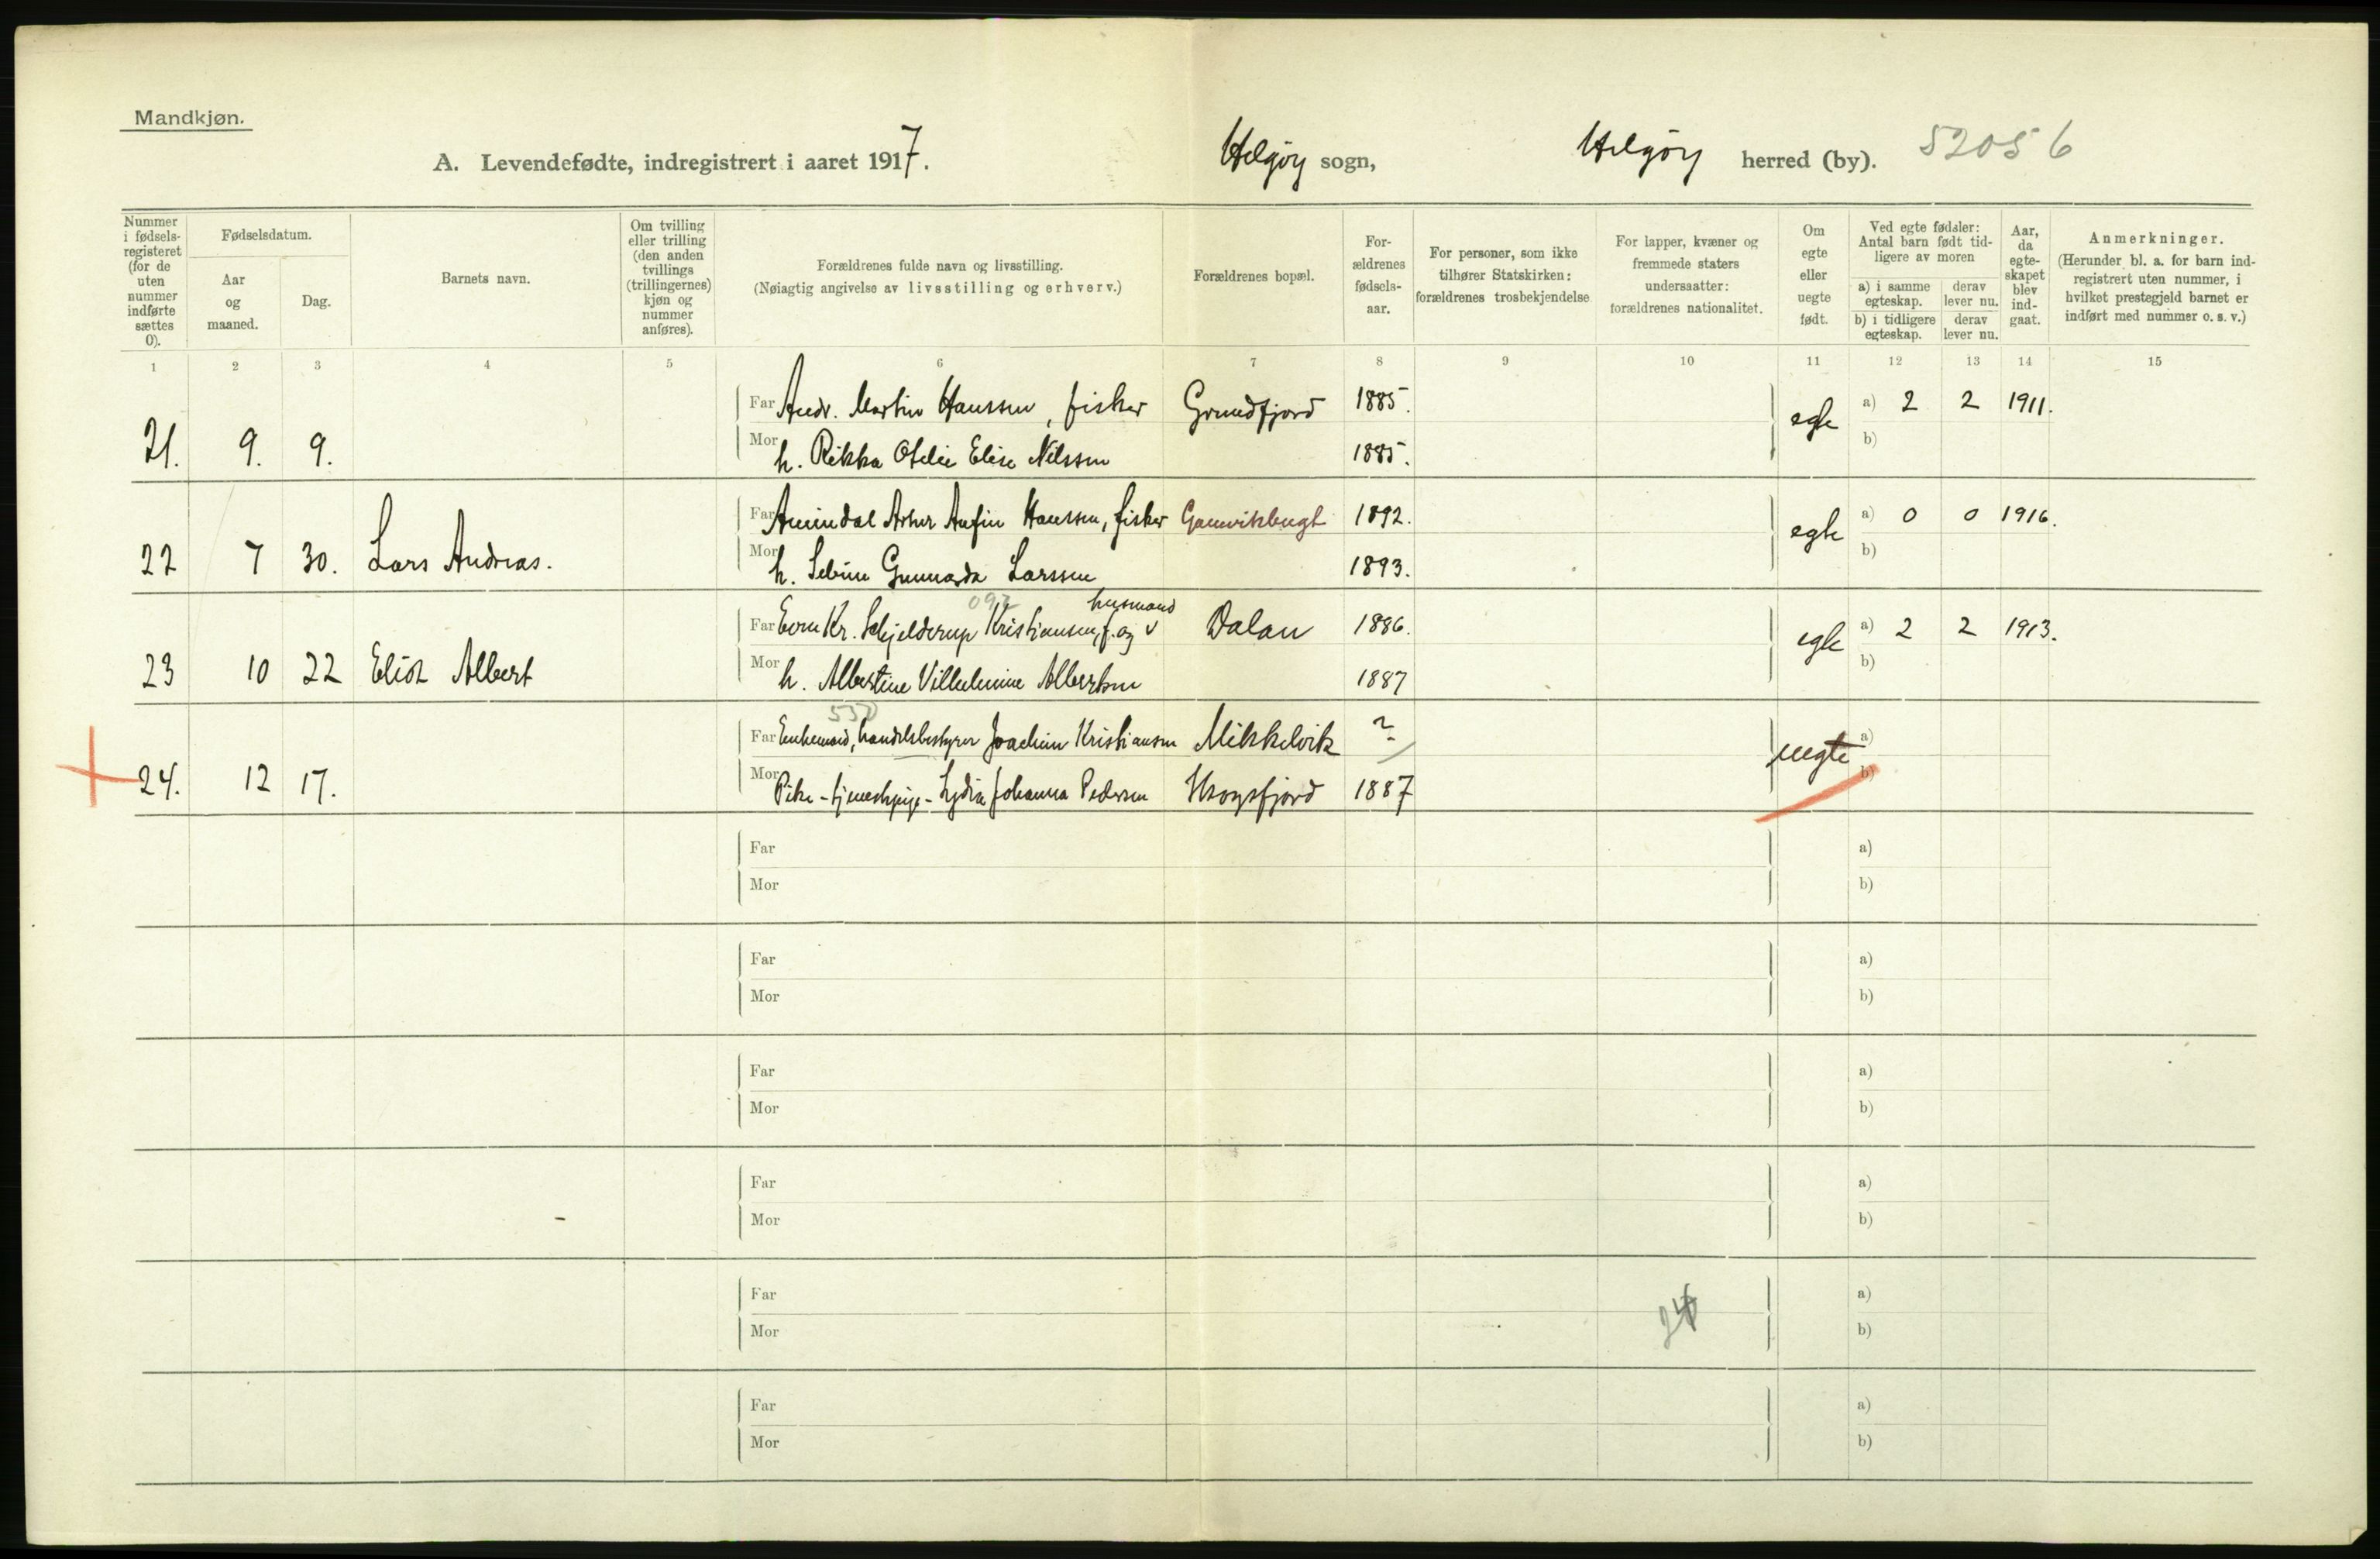 Mandkjøn.
A. Levendefødte, indregistrert i aaret 1917. Helgøy sogn, Helgøy herred (by). 52056
Nummer i fødselsregisteret (for de uten nummer indførte sættes 0).
Fødselsdatum.
Aar og maaned.
Dag.
Barnets navn.
Om tvilling eller trilling (den anden tvillings (trillingernes) kjøn og nummer anføres).
Forældrenes fulde navn og livsstilling.
(Nøiagtig angivelse av livsstilling og erhverv.)
Forældrenes bopæl.
Forældrenes fødselsaar.
For personer, som ikke tilhører Statskirken: forældrenes trosbekjendelse
For lapper, kvæner og fremmede staters undersaatter: forældrenes nationalitet.
Om egte eller uegte født.
Ved egte fødsler: Antal barn født tidligere av moren
a) i samme egteskap. derav lever nu.
b) i tidligere egteskap. derav lever nu.
Aar, da egteskapet blev indgaat.
Anmerkninger.
(Herunder bl. a. for barn indregistrert uten nummer, i hvilket prestegjeld barnet er indført med nummer o. s. v.)
1 2 3 4 5 6 7 8 9 10 11 12 13 14 15
Far Andr. Martin Hanssen, fisker Grundfjord 1885. egte a) 2 2 1911.
21. 9. 9. Mor h. Rikka Otelie Elise Nilssen 1885. b)
Far Artur Hanssen, fisker 1892. egte a) 0 0 1916.
22 7 30. Lars Andreas. Mor h. Gunnarda Larssen 1893. b)
092 husmand
Far Kr. Schjelderup Kristiansen, f. og v Dalan 1886. egte a) 2 2 1913.
23 10 22 Eliot Albert Mor h. Albertine Vilhelmine Albertsen 1887 b)
Far Enkemand, handelsbestyrer Joachim Kristiansen Mikkelvik ? uegte a)
24. 12 17. Mor Pike - tjenestepige - Lydia Johanna Pedersen 1887 b)
Far a)
Mor b)
Far a)
Mor b)
Far a)
Mor b)
Far a)
Mor b)
Far a)
Mor b)
Far a)
Mor b)